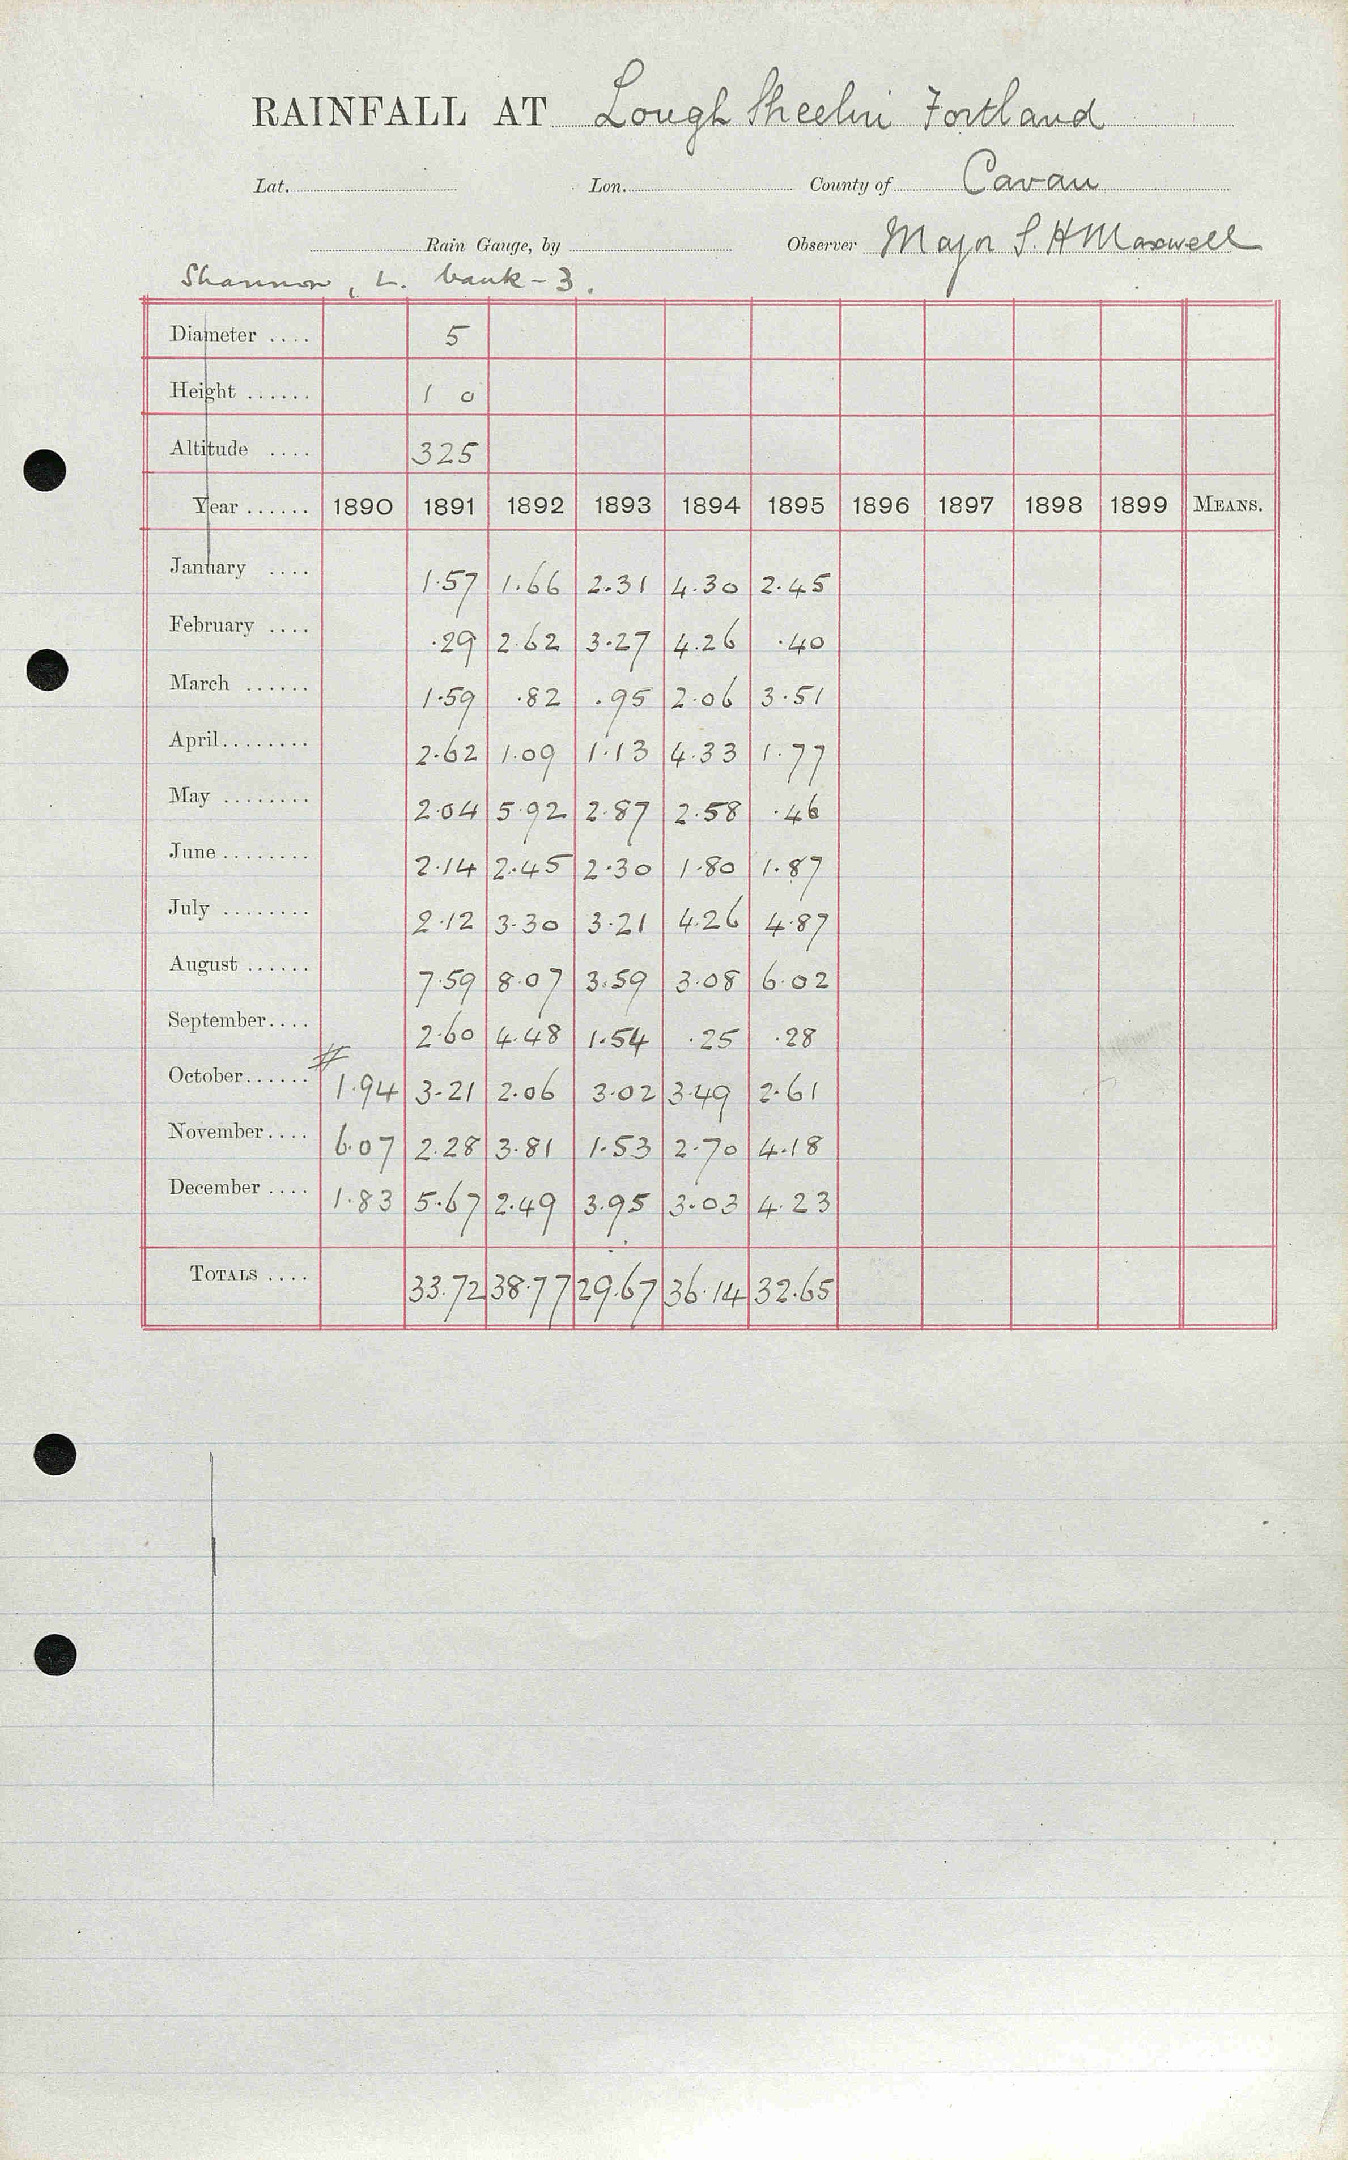 RAINFALL AT Lough Sheelin Fortland
Lat. Lon. County of Cavan
Rain Gauge, by Observer Major S. H Maxwell
Shannon, L. bank - 3.
Diameter .... 5
Height ...... 1 0
Altitude .... 325
Year ...... 1890 1891 1892 1893 1894 1895 1896 1897 1898 1899 MEANS.
January .... 1.57 1.66 2.31 4.30 2.45
February .... .29 2.62 3.27 4.26 .40
March ...... 1.59 .82 .95 2.06 3.51
April........ 2.62 1.09 1.13 4.33 1.77
May ........ 2.04 5.92 2.87 2.58 .46
June ........ 2.14 2.45 2.30 1.80 1.87
July ........ 2.12 3.30 3.21 4.26 4.87
August ...... 7.59 8.07 3.59 3.08 6.02
September.... 2.60 4.48 1.54 .25 .28
October...... # 1.94 3.21 2.06 3.02 3.49 2.61
November.... 6.07 2.28 3.81 1.53 2.70 4.18
December .... 1.83 5.67 2.49 3.95 3.03 4.23
TOTALS .... 33.72 38.77 29.67 36.14 32.65